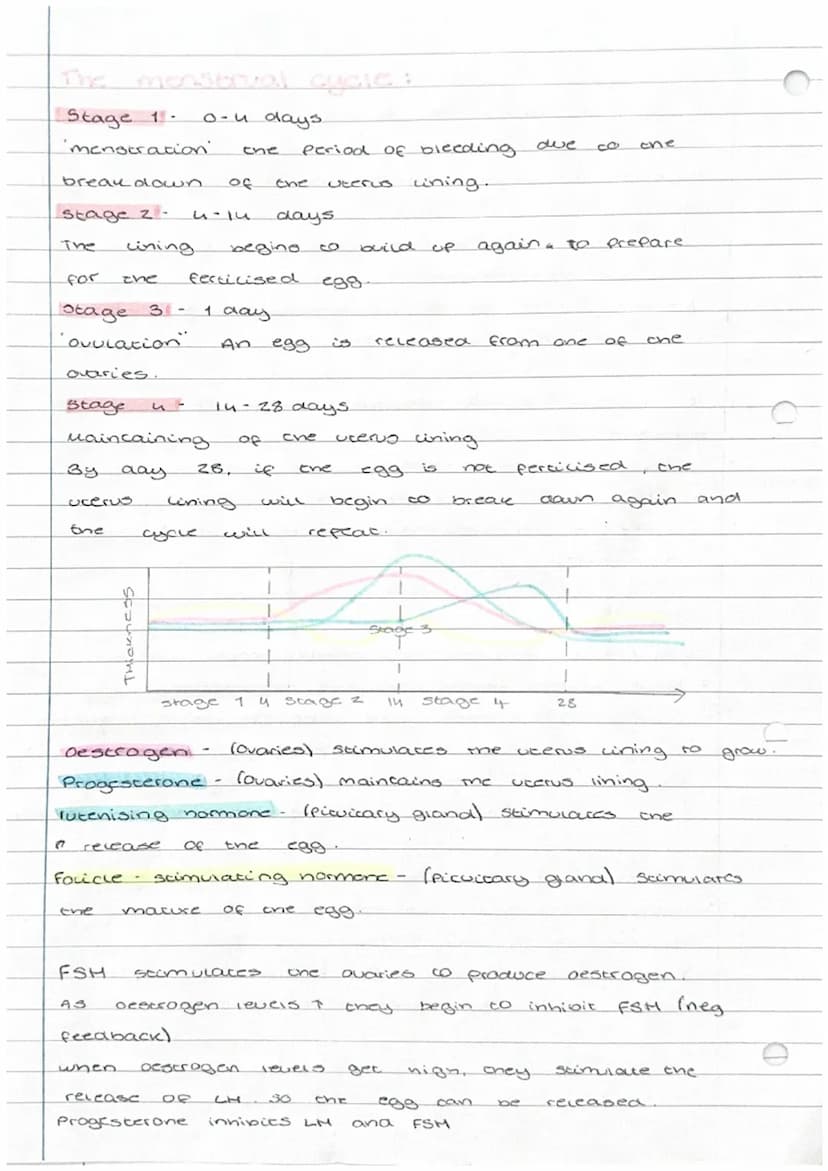 The menstrual cycle:
Stage 1 - 0-4 days
'menstration' the period of bleeding due to the
breakdown of the uterus lining.
Stage 2 - 4-14 days
The lining begins to build up again. to prepare
for the fertilised egg.
Stage 3 - 1 day
"ovulation" An egg is released from one of the
ovaries.
Stage 4 - 14-28 days
Maintaining of the uterus lining
By day 28, if the egg is not fertilised, the
uterus lining will begin to break down again and
the cycle will repeat.
Thickness
Stage 3
stage 1 4 stage 2 14 stage 4 28
Oestrogen - (ovaries) stimulates the uterus lining to grow.
Progesterone - (ovaries) maintains the uterus lining.
lutenising hormone - (pituitary gland) stimulates the
release of the egg.
Folicle - stimulating hormone - (pituitary gland) stimulates
the mature of the egg.
FSH stimulates the ovaries to produce oestrogen.
As oestrogen levels ↑ they begin to inhibit FSH (neg
feedback)
when oestrogen levels get high, they stimulate the
release of LH. so the egg can be released.
Progesterone inhibits LH and FSH